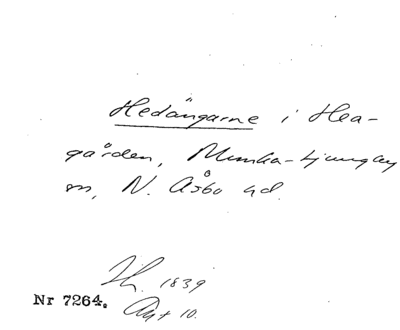 Hedängarne i Hea-
gården, Munka-Ljungby
sn, N. Åsbo hd.
1839
Nr 7264. Akt 10.